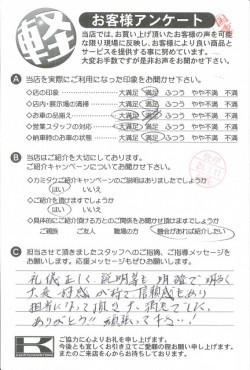 軽
お客様アンケート
当店では、お買い上げ頂いたお客様の声を可能
な限り現場に反映し、お客様により良い商品と
サービスを提供する事に努めています。
大変お手数ですが是非お声をお聞かせ下さい。
A 当店を実際にご利用になった印象をお聞かせ下さい。
◇店の印象 大満足 満足 ふつう やや不満 不満
◇店内・展示場の清掃 大満足 満足 ふつう やや不満 不満
◇お車の品揃え 大満足 満足 ふつう やや不満 不満
◇営業スタッフの対応 大満足 満足 ふつう やや不満 不満
◇納車時のお車の状態 大満足 満足 ふつう やや不満 不満
B 当店はご紹介を大切にしております。
ご紹介キャンペーンについてお聞かせ下さい。
◇カミタケご紹介キャンペーンのご説明はありましたでしょうか
はい いいえ
◇ご紹介を頂けますでしょうか
はい いいえ
◇具体的にご紹介頂ける方とのご関係をお聞かせ頂けますでしょうか
ご親族 ご友人 職場の方 機会があれば紹介したい
C 担当させて頂きましたスタッフへのご指摘、ご指導メッセージを
お願いします。応援メッセージもぜひお聞かせください。
礼儀正しく、説明等も明確で明るく
大変好感が持て信頼感もあり
担当になって頂き大満足でした。
ありがとう!! 頑張って下さい!
K
ご協力に心よりお礼を申し上げます。
今後とも宜しくお引き立てご愛顧の程お願い申し上げます。
またのご来店を心からお待ちしております。